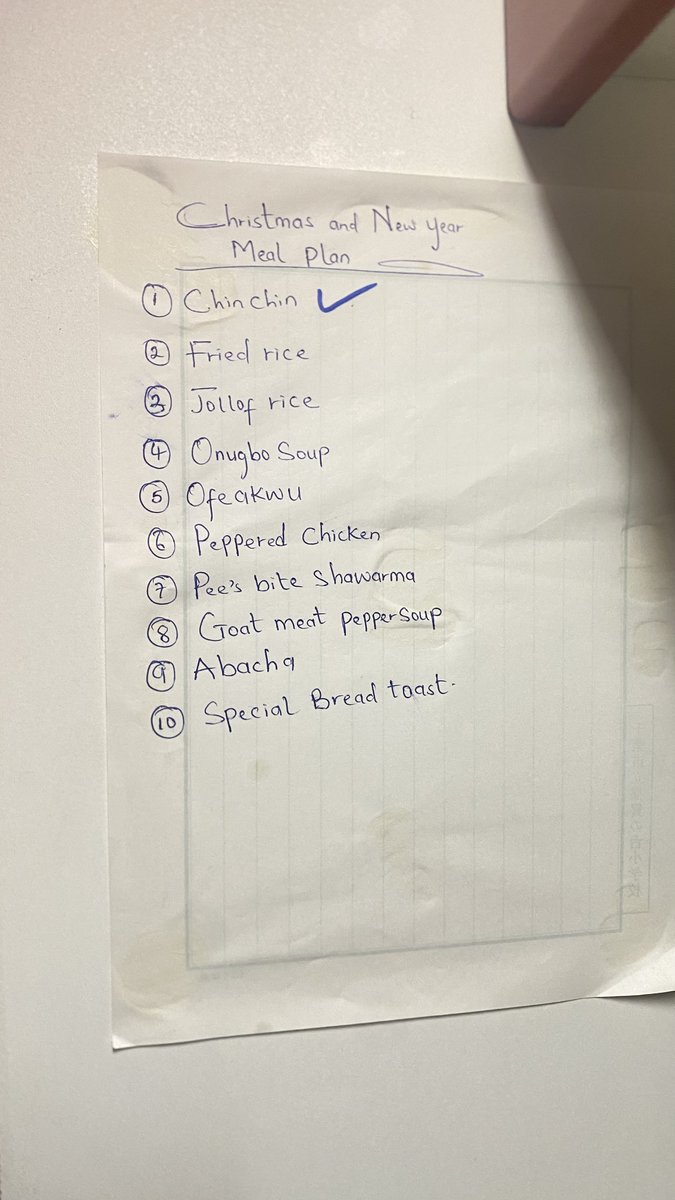 Christmas and New year
Meal plan
1 Chinchin ✓
2 Fried rice
3 Jollof rice
4 Onugbo Soup
5 Ofe akwu
6 Peppered Chicken
7 Pee's bite Shawarma
8 Goat meat peppersoup
9 Abacha
10 Special Bread toast.